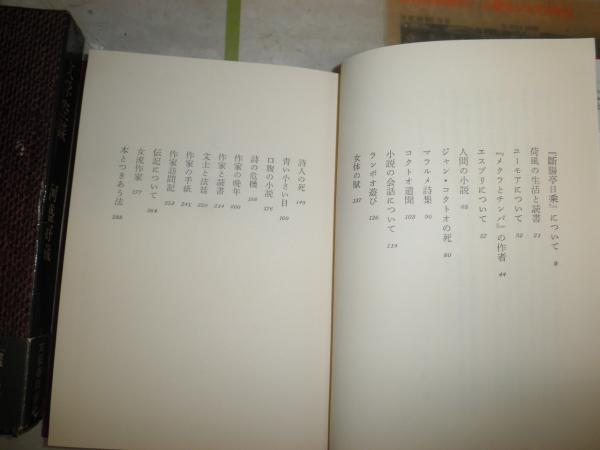 『断腸亭日乗』について 9
荷風の生活と読書 21
ユーモアについて 32
『メクラとチンバ』の作者 44
エスプリについて 57
人間の小説 68
ジャン・コクトオの死 80
マラルメ詩集 90
コクトオ遺聞 103
小説の会話について 119
ランボオ遊び 126
女体の賦 137
詩人の死 149
青い小さい目 160
口腹の小説 176
詩の危機 188
作家の晩年 200
作家と読書 211
文士と法廷 220
作家の手紙 242
作家訪問記 253
伝記について 264
女流作家 277
本とつきあう法 288